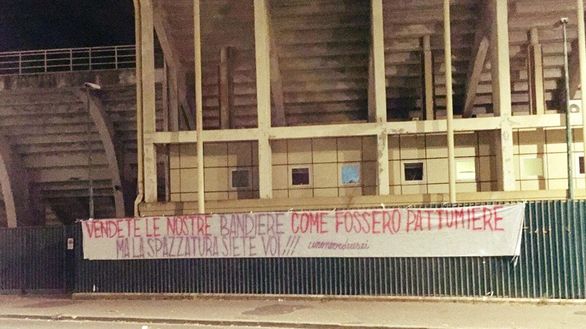 VENDETE LE NOSTRE BANDIERE COME FOSSERO PATTUMIERE
MA LA SPAZZATURA SIETE VOI!!!